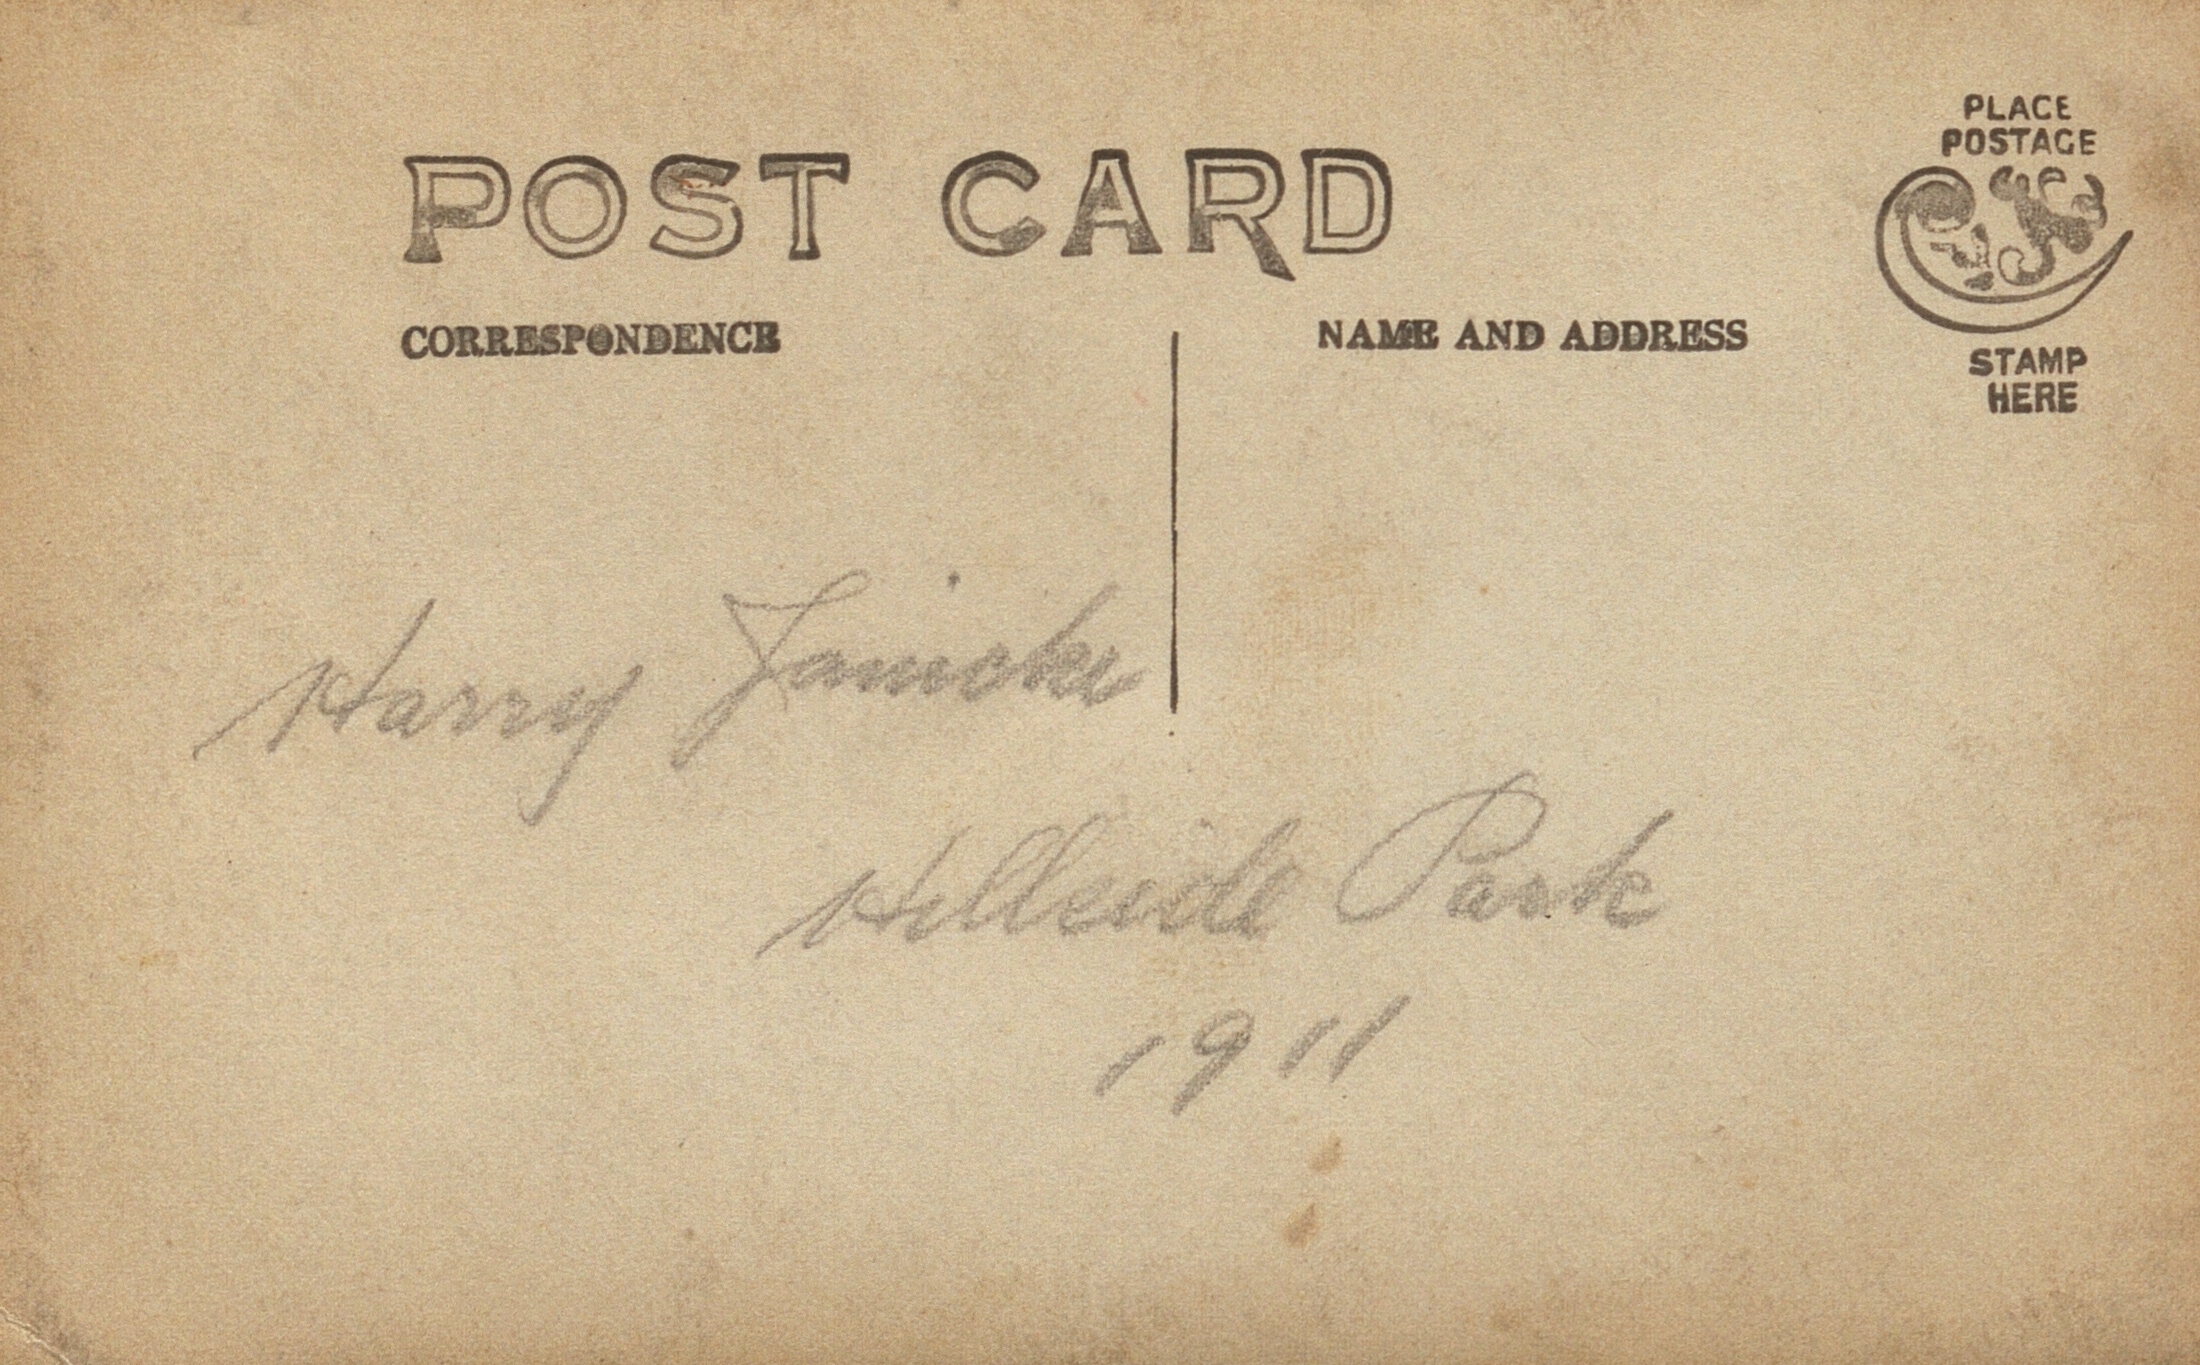 POST CARD
PLACE
POSTAGE
STAMP
HERE
CORRESPONDENCE
NAME AND ADDRESS
Harry Janicke
Hillside Park
1911